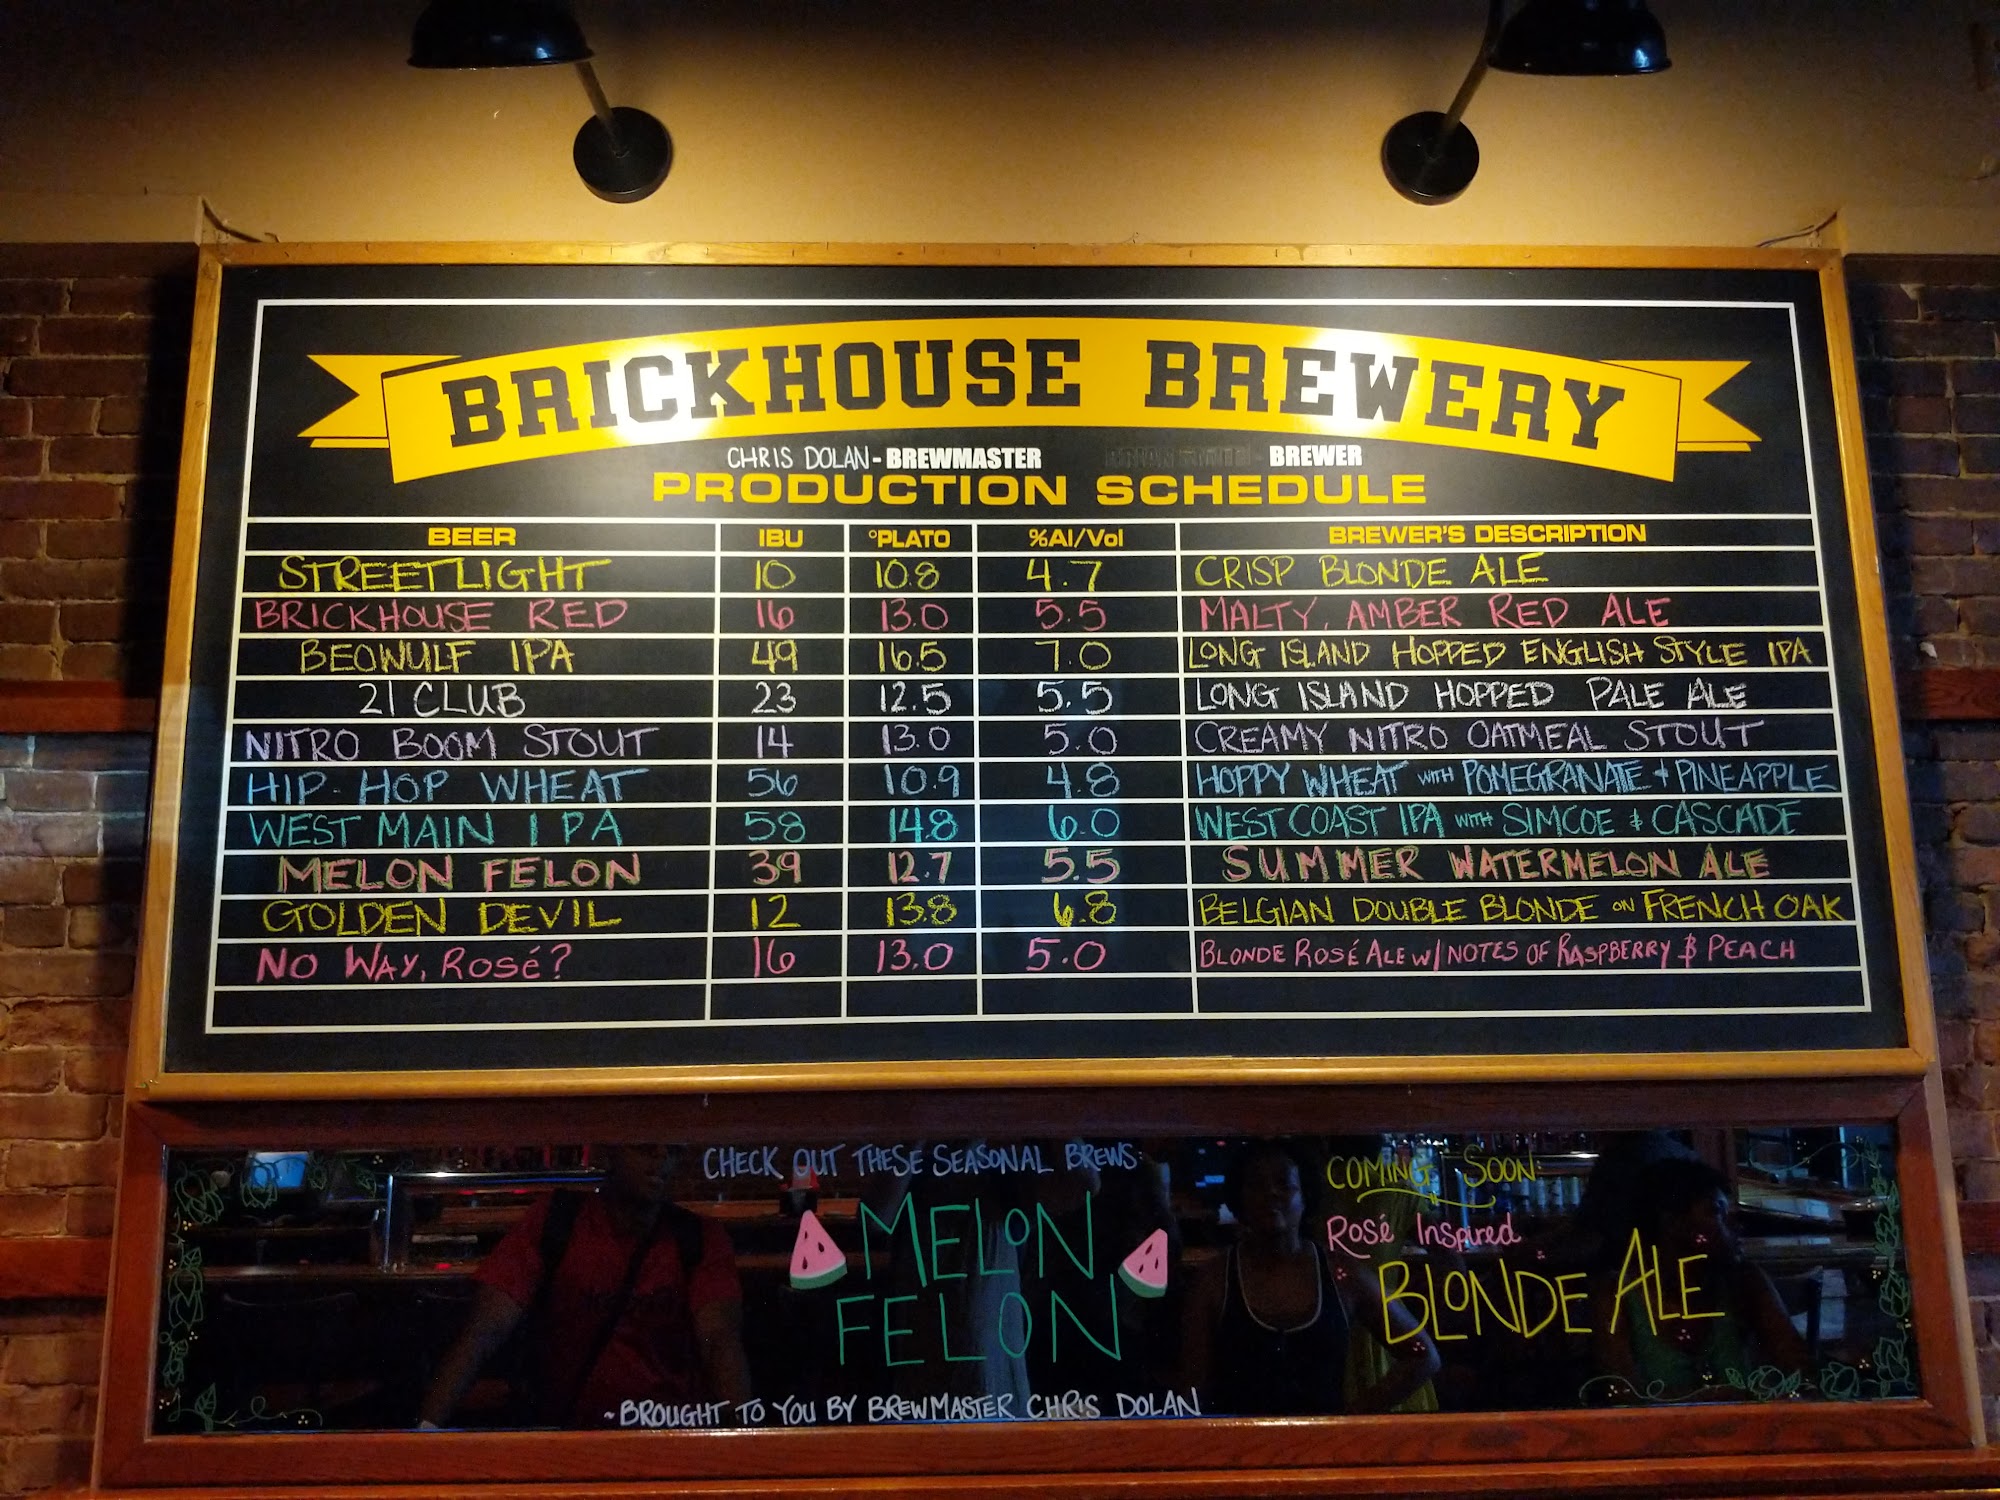 BRICKHOUSE BREWERY
CHRIS DOLAN - BREWMASTER - BREWER
PRODUCTION SCHEDULE
BEER IBU °PLATO %Al/Vol BREWER'S DESCRIPTION
STREETLIGHT 10 10.8 4.7 CRISP BLONDE ALE
BRICKHOUSE RED 16 13.0 5.5 MALTY, AMBER RED ALE
BEOWULF IPA 49 16.5 7.0 LONG ISLAND HOPPED ENGLISH STYLE IPA
21 CLUB 23 12.5 5.5 LONG ISLAND HOPPED PALE ALE
NITRO BOOM STOUT 14 13.0 5.0 CREAMY NITRO OATMEAL STOUT
HIP-HOP WHEAT 56 10.9 4.8 HOPPY WHEAT WITH POMEGRANATE & PINEAPPLE
WEST MAIN IPA 58 14.8 6.0 WEST COAST IPA WITH SIMCOE & CASCADE
MELON FELON 39 12.7 5.5 SUMMER WATERMELON ALE
GOLDEN DEVIL 12 13.8 6.8 BELGIAN DOUBLE BLONDE ON FRENCH OAK
NO WAY, ROSé? 16 13.0 5.0 BLONDE ROSÉ ALE W/ NOTES OF RASPBERRY & PEACH
CHECK OUT THESE SEASONAL BREWS:
MELON
FELON
~BROUGHT TO YOU BY BREWMASTER CHRIS DOLAN
COMING SOON:
Rosé Inspired
BLONDE ALE